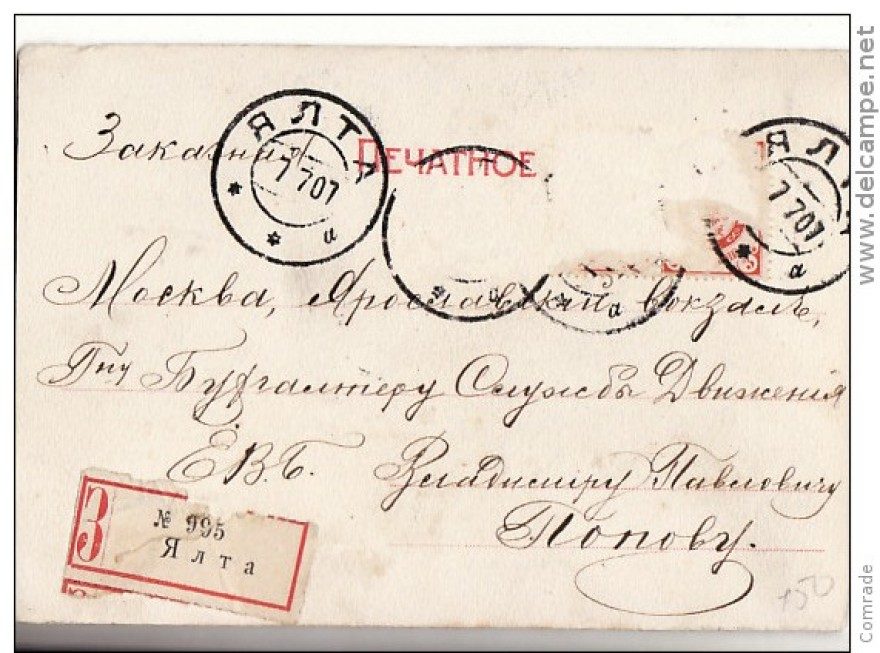 ЯЛТА
7 7 07
а
Заказная
ПЕЧАТНОЕ
ЯЛТА
7 7 07
а
а
Москва, Ярославский вокзалъ,
Гну Бухгалтеру Службы Движенія
Владиміру Павловичу
Попову.
З
№ 995
Ялта
150
www.delcampe.net
Comrade